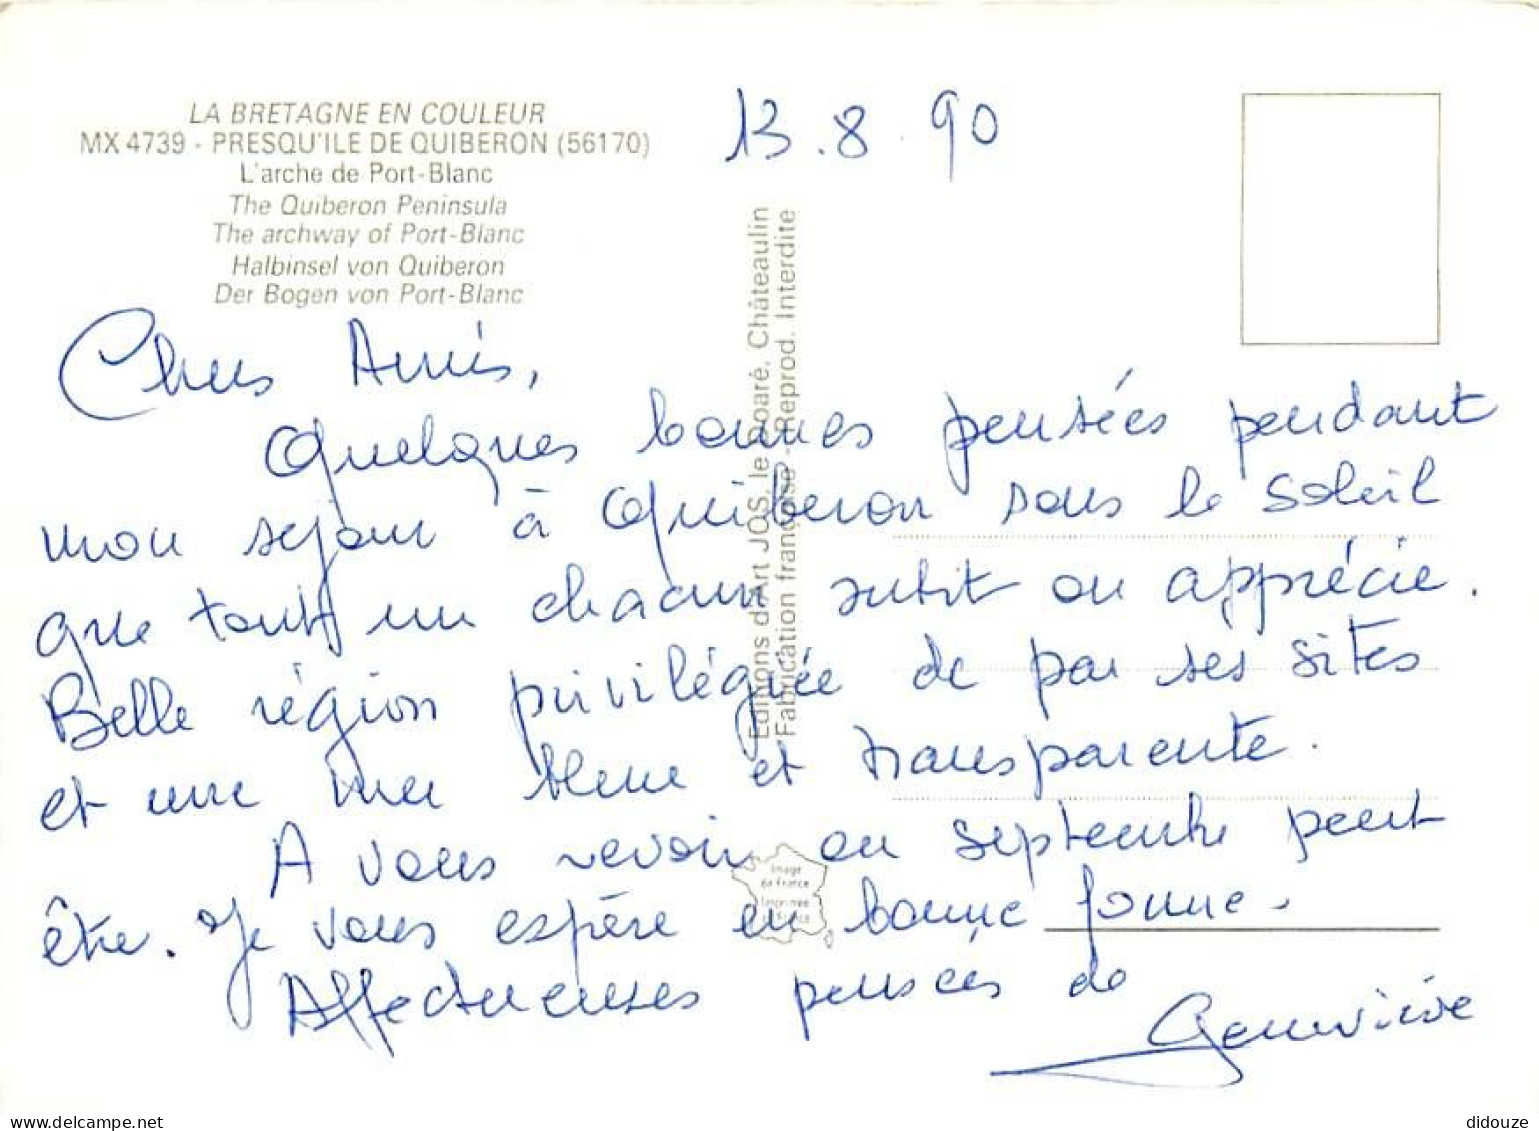 LA BRETAGNE EN COULEUR
MX 4739 - PRESQU'ILE DE QUIBERON (56170)
L'arche de Port-Blanc
The Quiberon Peninsula
The archway of Port-Blanc
Halbinsel von Quiberon
Der Bogen von Port-Blanc
13.8.90
Editions d'Art JOS, le Doaré, Châteaulin
Fabrication française - Reprod. Interdite
Chers Amis,
Quelques bonnes pensées pendant
mon sejour à Quiberon sous le soleil
que tout un chacun subit ou apprécie.
Belle région privilégiée de par ses sites
et une mer bleue et transparente.
A vous revoir en septembre peut
être. Je vous espère en bonne forme.
Affectueuses pensées de
Geneviève
Image
de France
Imprimée
en France
delcampe.net
didouze